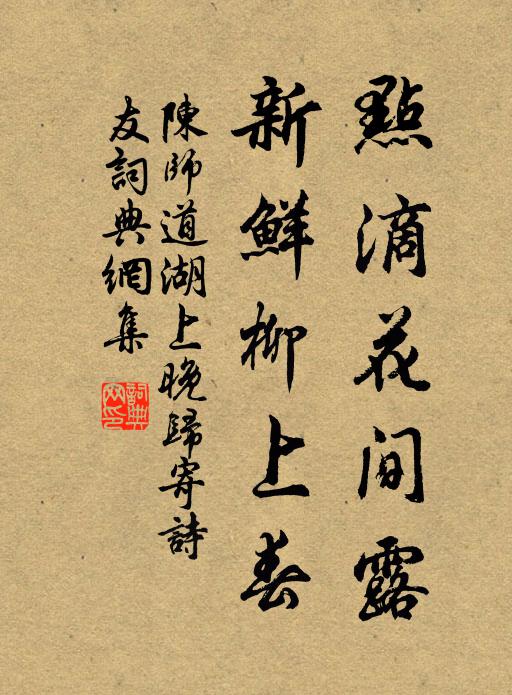 點滴花間露
新鮮柳上春
陳師道湖上晚歸寄詩
友詞典網集
詞典网印